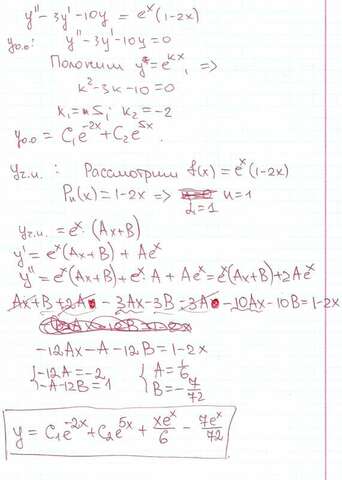 y'' - 3y' - 10y = eˣ(1-2x)
y₀.₀: y'' - 3y' - 10y = 0
Положим y* = eᵏˣ, =>
k² - 3k - 10 = 0
k₁ = 5; k₂ = -2
y₀.₀ = C₁e⁻²ˣ + C₂e⁵ˣ.
yч.н.: Рассмотрим f(x) = eˣ(1-2x)
Pₙ(x) = 1-2x => n=1
α=1
yч.н. = eˣ·(Ax+B)
y' = eˣ(Ax+B) + Aeˣ
y'' = eˣ(Ax+B) + eˣ·A + Aeˣ = eˣ(Ax+B) + 2Aeˣ
Ax+B+2A - 3Ax-3B-3A - 10Ax-10B = 1-2x
-12Ax - A - 12B = 1-2x
{ -12A = -2 { A = 1/6
-A-12B = 1 B = -7/72
y = C₁e⁻²ˣ + C₂e⁵ˣ + xeˣ/6 - 7eˣ/72